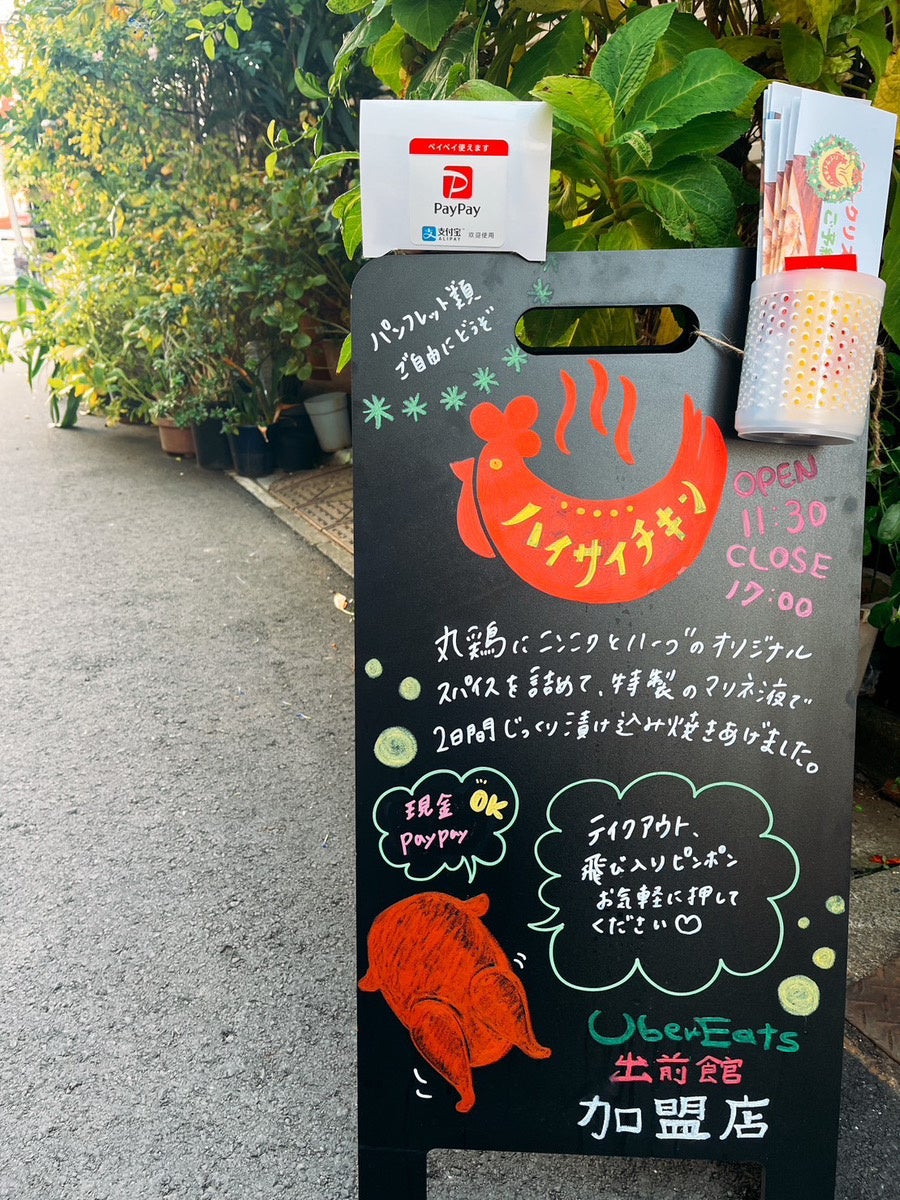 ペイペイ使えます
PayPay
支付宝 欢迎使用
ALIPAY
パンフレット類
ご自由にどうぞ
ハイサイチキン
OPEN
11:30
CLOSE
17:00
丸鶏にニンニクとハーブのオリジナル
スパイスを詰めて、特製のマリネ液で
2日間じっくり漬け込み焼きあげました。
現金 OK
paypay
テイクアウト、
飛び入りピンポン
お気軽に押して
ください♡
UberEats
出前館
加盟店